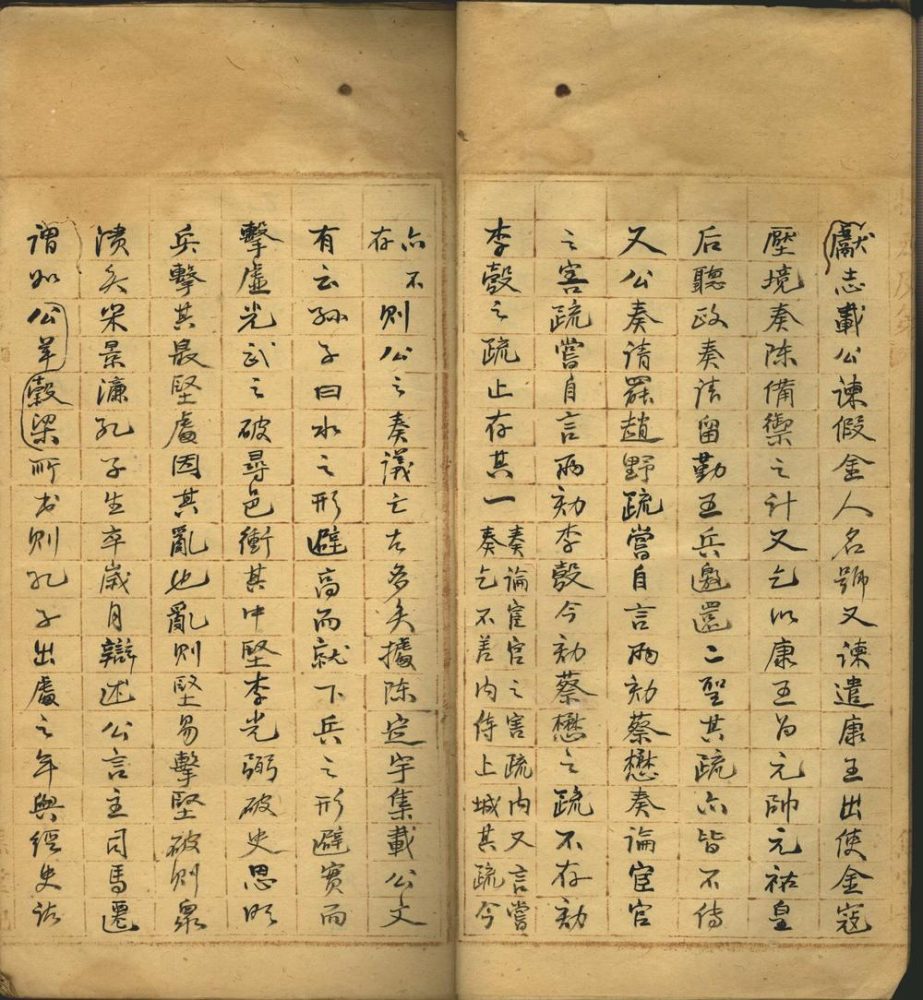 獻志載公諫假金人名號又諫遣康王出使金寇
壓境奏陳備禦之計又乞以康王為元帥元祐皇
后聽政奏請留勤王兵邀還二聖其疏亦皆不傳
又公奏請罷趙野疏嘗自言兩劾蔡懋奏論宦官
之害疏嘗自言兩劾李彀今劾蔡懋之疏不存劾
李彀之疏止存其一奏論宦官之害疏內又言嘗
奏乞不差內侍上城其疏今
亦不
存則公之奏議亡者多矣據陳定宇集載公文
有云孫子曰水之形避高而就下兵之形避實而
擊虛光武之破尋邑衝其中堅李光弼破史思明
兵擊其最堅處因其亂也亂則堅易擊堅破則衆
潰矣宋景濂孔子生卒歲月辯述公言主司馬遷
謂如公羊穀梁所書則孔子出處之年與經史諸